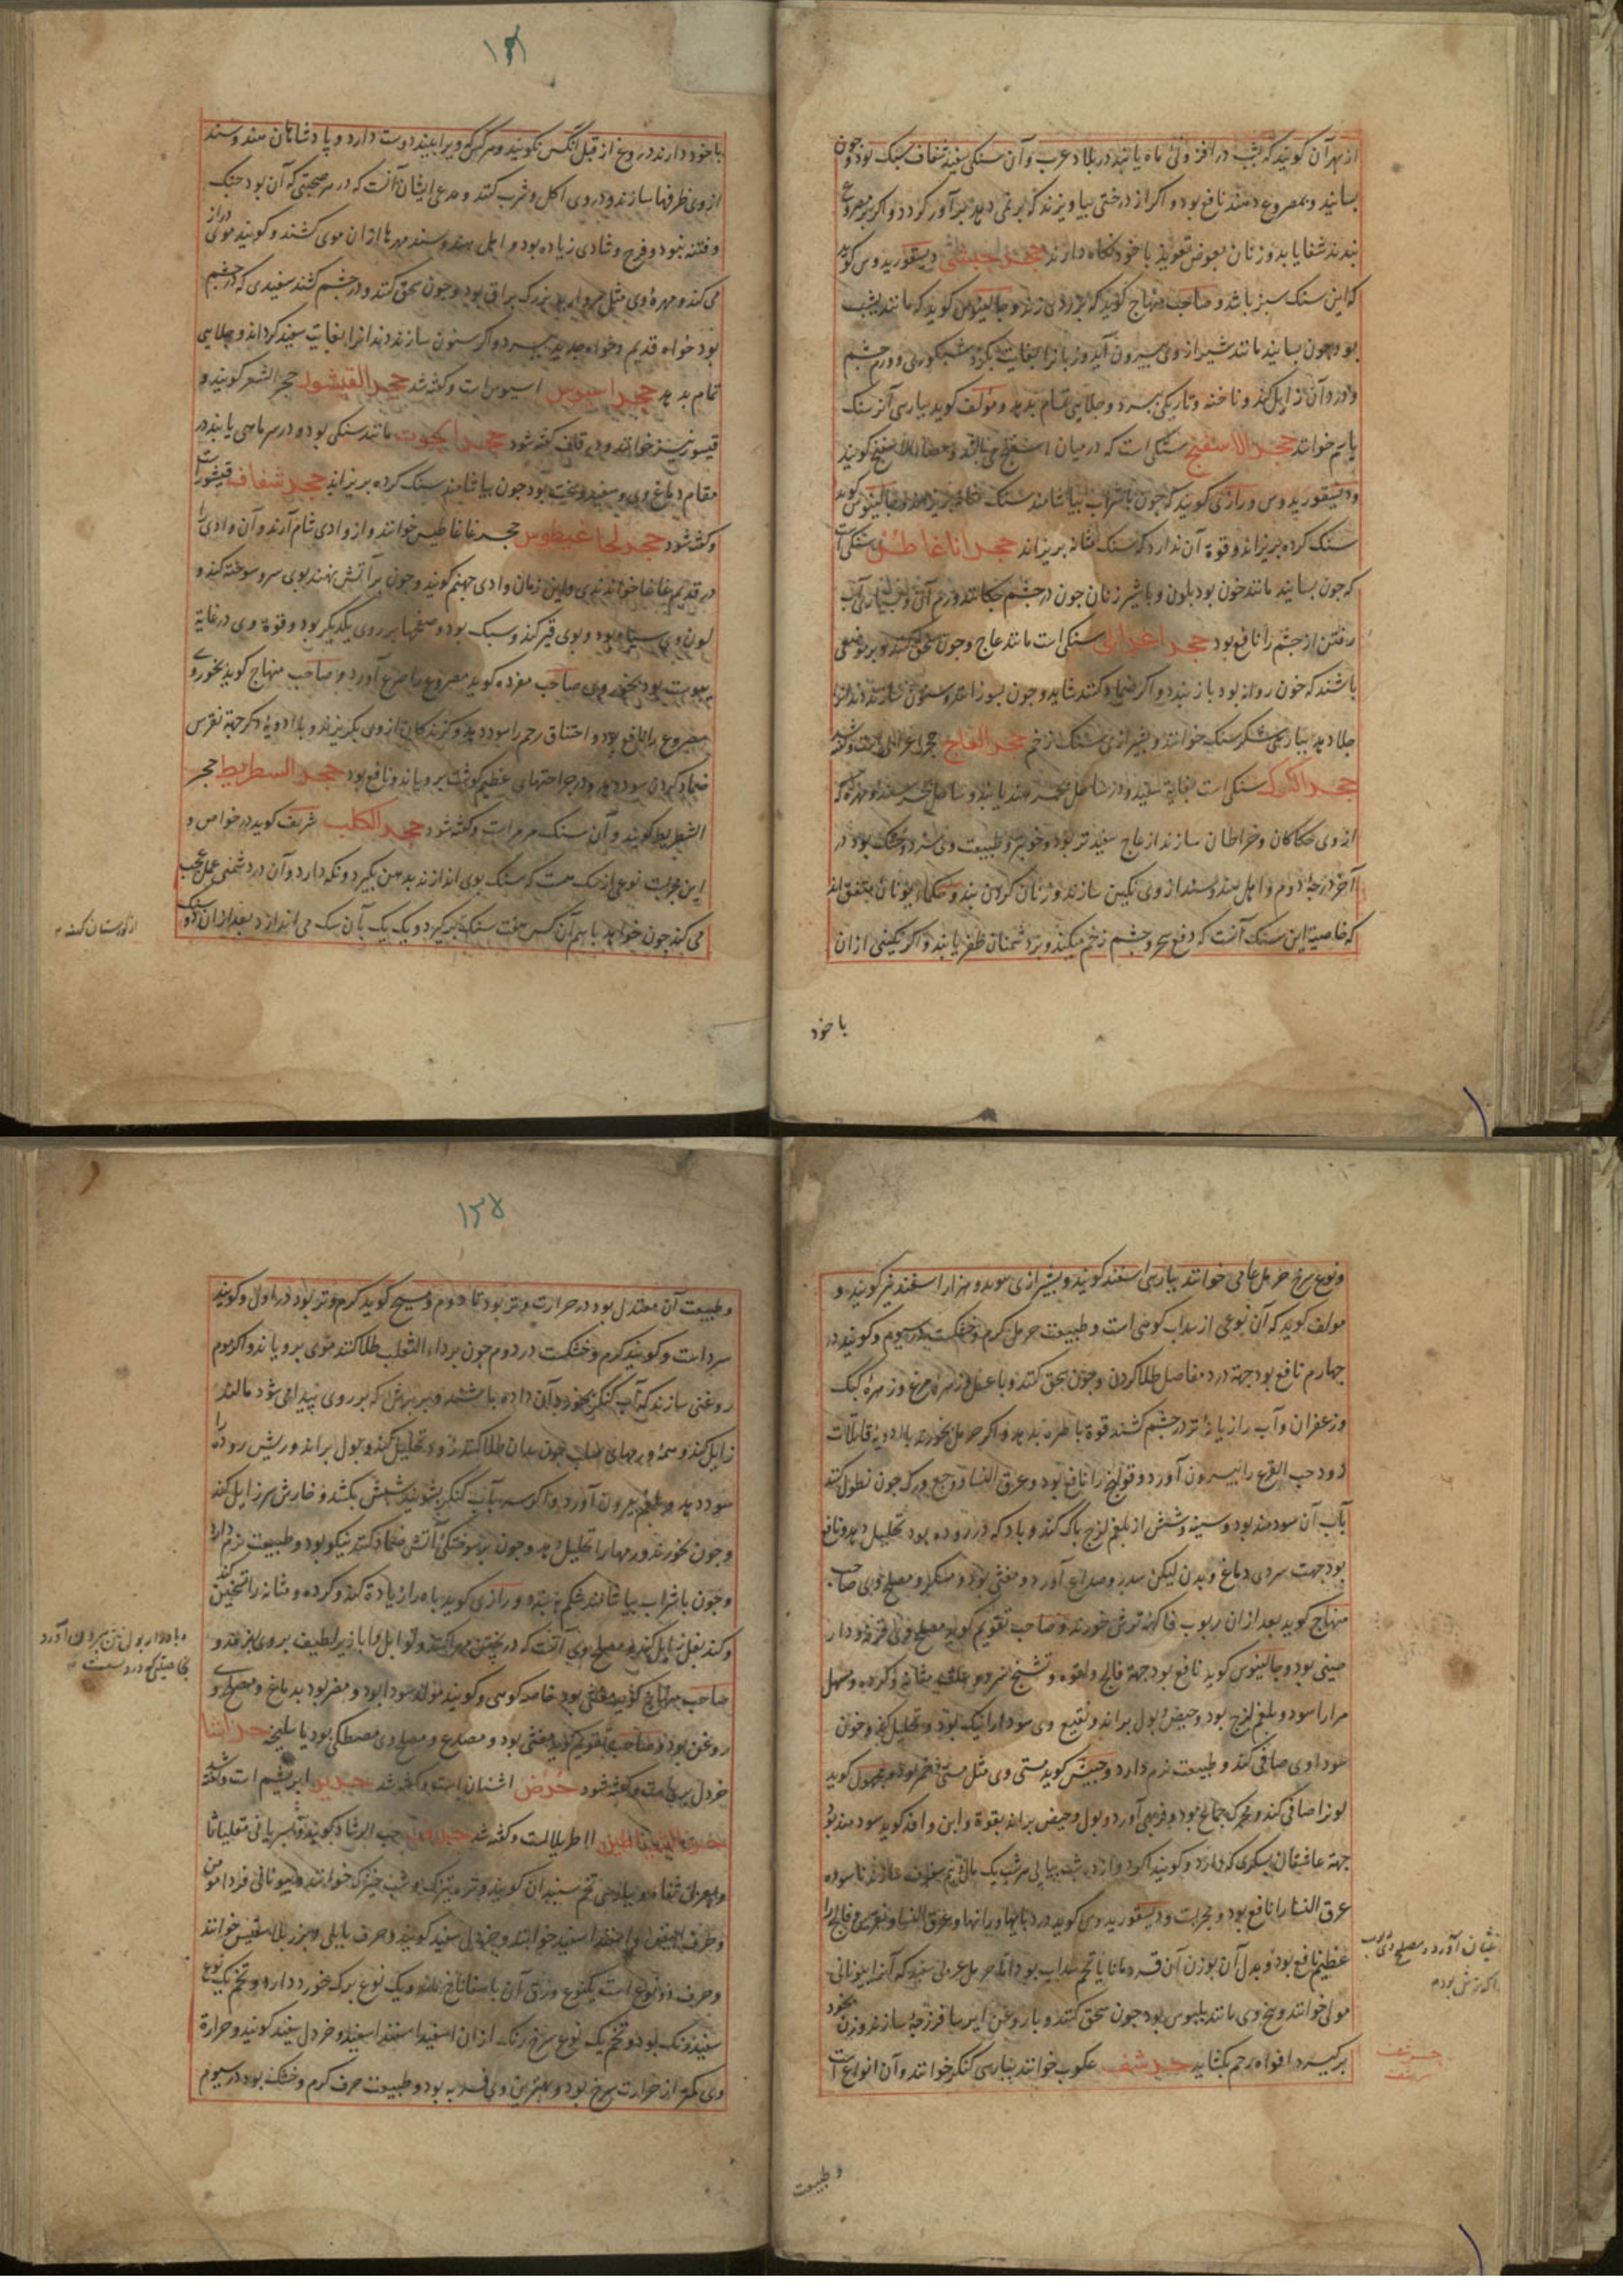 از بهر آن گویند که شب در افزونی ماه یابند در بلاد عرب و آن سنگی سفید شفاف سبک بود و چون
بسایند و بمصروع دهند نافع بود و اگر از درختی بیاویزند که بر نمی دهد بر آورد و اگر بر مصروع
بندند شفا یابد و زنان بعوض تعویذ با خود نگاه دارند حجر حبشی دیسقوریدوس گوید
که این سنگ سبز باشد و صاحب منهاج گوید که بزردی زند و جالینوس گوید که مانند یشب
بود چون بسایند مانند شیر از وی بیرون آید و زبانرا بغایت بگزد شبکوری و ورم چشم
و درد آن زایل کند و ناخنه و تاریکی ببرد و جلایی تمام بدهد و مولف گوید بپارسی آنرا سنگ
یا پم خوانند حجر الاسفنج سنگی است که در میان اسفنج می باشد و حصاة الاسفنج گویند
و دیسقوریدوس و رازی گویند که چون با شراب بیاشامند سنگ مثانه بریزاند و جالینوس گوید
سنگ کرده بریزاند و قوة آن ندارد که سنگ مثانه بریزاند حجر اناغاطس سنگی است
که چون بسایند مانند خون بود بلون و با شیر زنان چون در چشم چکانند ورم آن و بسیاری آب
رفتن از چشم را نافع بود حجر اعرابی سنگی است مانند عاج و چون سحق کنند و بر موضعی
باشند که خون روانه بود باز بندد و اگر ضماد کنند شاید و چون بسوزانند و سنون سازند دندانرا
جلا دهد بپارسی شکر سنگ خوانند و بشیرازی سنگ زخم حجر العاج حجر اعرابی است و گفته شد
حجر الکرک سنگی است بغایة سفید و در ساحل بحر هند یابند و ساحل بحر سند و مهره که
از وی حکاکان و خراطان سازند از عاج سفیدتر بود و خوبتر و طبیعت وی سرد و خشک بود در
آخر درجه دوم و اهل هند و سند از وی نگین سازند و زنان گردن بند و حکماء یونان متفق اند
که خاصیة این سنگ آنست که دفع سحر و چشم زخم میکند و بر دشمنان ظفر یابند و اگر نگینی از ان
با خود
۱۳۱
با خود دارند دروغ از قبل آنکس نگویند و هر کس که ویرا ببیند دوست دارد و پادشاهان هند و سند
از وی ظرفها سازند و در وی اکل و شرب کنند و مدعی ایشان آنست که در هر صحبتی که آن بود جنگ
و فتنه نبود و فرح و شادی زیاده بود و اهل هند و سند مهرها از ان موی کشند و گویند موی دراز
می کند و مهره وی مثل مروارید بزرگ براق بود و چون سحق کنند و در چشم کشند سفیدی که در چشم
بود خواه قدیم و خواه جدید ببرد و اگر سنون سازند دندانرا بغایت سفید گرداند و جلایی
تمام بدهد حجر اسیوس اسیوس است و گفته شد حجر القیشور حجر الشعر گویند و
قیسور نیز خوانند و در قاف گفته شود حجر الحوت مانند سنگی بود و در سر ماهی یابند در
مقام دماغ وی و سفید و سخت بود چون بیاشامند سنگ کرده بریزاند حجر شفاف قیشور است
و گفته شود حجر لحاغیطوس حجر غاغاطیس خوانند و از وادی شام آرند و آن وادی را
در قدیم غاغا خواندندی و این زمان وادی جهنم گویند و چون بر آتش نهند بوی سرو سوخته کند و
لون وی سیاه بود و بوی قیر کند و سبک بود و صفحها بر روی یکدیگر بود و قوة وی در غایة
یبوست بود بخور وی صاحب مفرده گوید مصروع را صرع آورد و صاحب منهاج گوید بخور وی
مصروع را نافع بود و اختناق رحم را سود دهد و گزندگان از وی بگریزند و با ادویه دیگر جهة نقرس
ضماد کردن سود دهد و در جراحتهای عظیم گوشت برویاند و نافع بود حجر السطریط حجر
الشطریط گویند و آن سنگ مرمر است و گفته شود حجر الکلب شریف گوید در خواص و
این مجربت نوعی از سگ هست که سنگ بوی اندازند بدهن بگیرد و نگه دارد و آن در دشمنی عمل عجب
می کند چون خواهد باسم آن کس هفت سنگ بگیرد و یک یک بآن سگ می اندازد بعد از ان دو سنگ
و نوع سرخ حرمل عامی خوانند بپارسی اسفند گویند و بشیرازی و هزار اسفند نیز گویند و
مولف گوید که آن نوعی از سداب کوهی است و طبیعت حرمل گرم و خشکست در سیوم و گویند در
چهارم نافع بود جهة درد مفاصل طلا کردن و چون سحق کنند و با عسل و زهره مرغ و زهره کبک
و زعفران و آب رازیانه تر در چشم کشند قوة باصره بدهد و اگر حرمل بخورند با ادویه قاتلات
دود حب القرع را بیرون آورد و قولنج را نافع بود و عرق النسا و وجع ورک چون نطول کنند
بآب آن سودمند بود و سینه و شش از بلغم لزج پاک کند و باد که در روده بود تحلیل دهد و نافع
بود جهت سردی دماغ و بدن لیکن سدر و صداع آورد و مغثی بود و مسکر و مصلح وی صاحب
منهاج گوید بعد از ان ربوب فاکهه ترش خورند و صاحب تقویم گوید مصلح وی قرنفه و دار
چینی بود و جالینوس گوید نافع بود جهة فالج و لقوه و تشنج سرد و علت مثانه و کرده و مسهل
مرار اسود و بلغم لزج بود و حیض و بول براند و نقیع وی سودا را نیک بود و تحلیل کند و خون
سوداوی صافی کند و طبیعت نرم دارد و حبیش گوید مستی وی مثل مستی خمر بود و مجهول گوید
لونرا صافی کند و محرک جماع بود و فربهی آورد و بول و حیض براند بقوة و ابن وافد گوید سودمند بود
جهة عاشقان بسکری که دارد و گویند اگر دوازده شب پیاپی هر شب یک مثقال و نیم سازند ناسوده
عرق النسا را نافع بود و مجربت و دیسقوریدوس گوید درد پایها و رانها و عرق النسا و نقرس و فالج را
عظیم نافع بود و بدل آن بوزن آن قردمانا یا تخم سداب بود اما حرمل عربی سفید که آنرا بیونانی
مولی خوانند و بیخ وی مانند بلبوس بود چون سحق کنند و با روغن ایرسا فرزجه سازند و زن بخود
برگیرد افواه رحم بگشاید حرشف عکوب خوانند بپارسی کنگر خوانند و آن انواع است
غثیان آورد و مصلح وی رب
حرشف
و طبیعت
۱۳۵
و طبیعت آن معتدل بود در حرارت و تر بود تا دوم و مسیح گوید گرم و تر بود در اول و گویند
سرد است و گویند گرم و خشکست در دوم چون بر داء الثعلب طلا کنند موی برویاند و اگر موم
روغنی سازند که آب کنگر بخورد آن داده باشند و بر برش که بر روی پیدا می شود مالند
زایل کند و همه ورمهای صلب چون بدان طلا کنند زود تحلیل کند و بول براند و ریش روده را
سود دهد و بلغم بیرون آورد و اگر سر بآب کنگر بشویند شپش بکشد و خارش سر زایل کند
و چون بخورند ورمها را تحلیل دهد و چون بر سوختگی آتش ضماد کنند نیکو بود و طبیعت نرم دارد
و چون با شراب بیاشامند شکم ببندد و رازی گوید باه را زیادة کند و کرده و مثانه را تسخین کند
و گند بغل زایل کند و مصلح وی آنست که در پختن مهرا کنند و توابل و ابازیر لطیف بر وی ریزند و
صاحب منهاج گوید مغثی بود خاصه کوهی و گویند مولد سودا بود و مضر بود بدماغ و مصلح وی
روغن بود و صاحب تقویم گوید مغثی بود و مصدع و مصلح وی مصطکی بود یا سلیخه حرانیا
خردل بریست و گفته شود حرض اشنان است و گفته شد حریر ابریشم است و گفته شد
اطریلالست و گفته شد حرف حب الرشاد گویند و بسریانی مقلیاثا
و بعربی ثفاء و بپارسی تخم سپندان گویند و تره تیزک و شب خیزک خوانند و بیونانی قردامومن
و حرف ابیض را اسفند اسفید خوانند و خردل سفید گویند و حرف بابلی و بزر بلاسقیس خوانند
و حرف دو نوع است یکنوع ورق آن باسفاناخ ماند و یک نوع برگ خورد دارد و تخم یک نوع
سفید رنگ بود و تخم یک نوع سرخ رنگ از ان اسفید اسفند اسفید و خردل سفید گویند و حرارة
وی کمتر از حرارت سرخ بود و بهترین وی فربه بود و طبیعت حرف گرم و خشک بود در سیوم